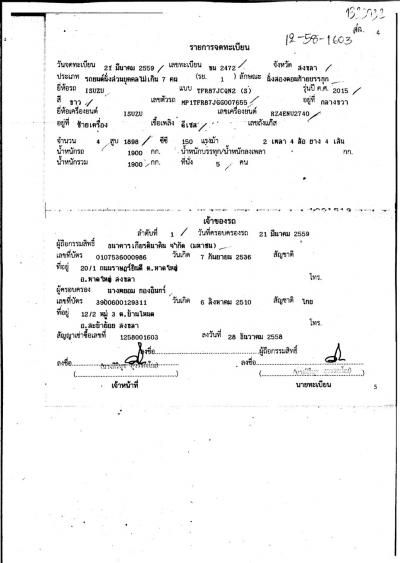 12-58-1603
4
รายการจดทะเบียน
วันจดทะเบียน 21 มีนาคม 2559 เลขทะเบียน ขน 2472 จังหวัด สงขลา
ประเภท รถยนต์นั่งส่วนบุคคลไม่เกิน 7 คน (รย. 1 ) ลักษณะ นั่งสองตอนท้ายบรรทุก
ยี่ห้อรถ ISUZU แบบ TFR87JCQM2 (S) รุ่นปี ค.ศ. 2015
สี ขาว เลขตัวรถ MP1TFR87JGG007655 อยู่ที่ กลางขวา
ยี่ห้อเครื่องยนต์ ISUZU เลขเครื่องยนต์ RZ4ENU2740
อยู่ที่ ซ้ายเครื่อง เชื้อเพลิง ดีเซล เลขถังแก๊ส
จำนวน 4 สูบ 1898 ซีซี 150 แรงม้า 2 เพลา 4 ล้อ ยาง 4 เส้น
น้ำหนักรถ 1900 กก. น้ำหนักบรรทุก/น้ำหนักลงเพลา กก.
น้ำหนักรวม 1900 กก. ที่นั่ง 5 คน
เจ้าของรถ
ลำดับที่ 1 วันที่ครอบครองรถ 21 มีนาคม 2559
ผู้ถือกรรมสิทธิ์ ธนาคารเกียรตินาคิน จำกัด (มหาชน)
เลขที่บัตร 0107536000986 วันเกิด 7 กันยายน 2536 สัญชาติ
ที่อยู่ 20/1 ถนนราษฎร์ยินดี ต.หาดใหญ่
อ.หาดใหญ่ สงขลา โทร.
ผู้ครอบครอง นางพยอม ทองอินทร์
เลขที่บัตร 3900600129311 วันเกิด 6 สิงหาคม 2510 สัญชาติ ไทย
ที่อยู่ 12/2 หมู่ 3 ต.บ้านโหนด
อ.สะบ้าย้อย สงขลา โทร.
สัญญาเช่าซื้อเลขที่ 1258001603 ลงวันที่ 28 ธันวาคม 2558
ลงชื่อ ผู้ถือกรรมสิทธิ์
ลงชื่อ ลงชื่อ
เจ้าหน้าที่ นายทะเบียน
5